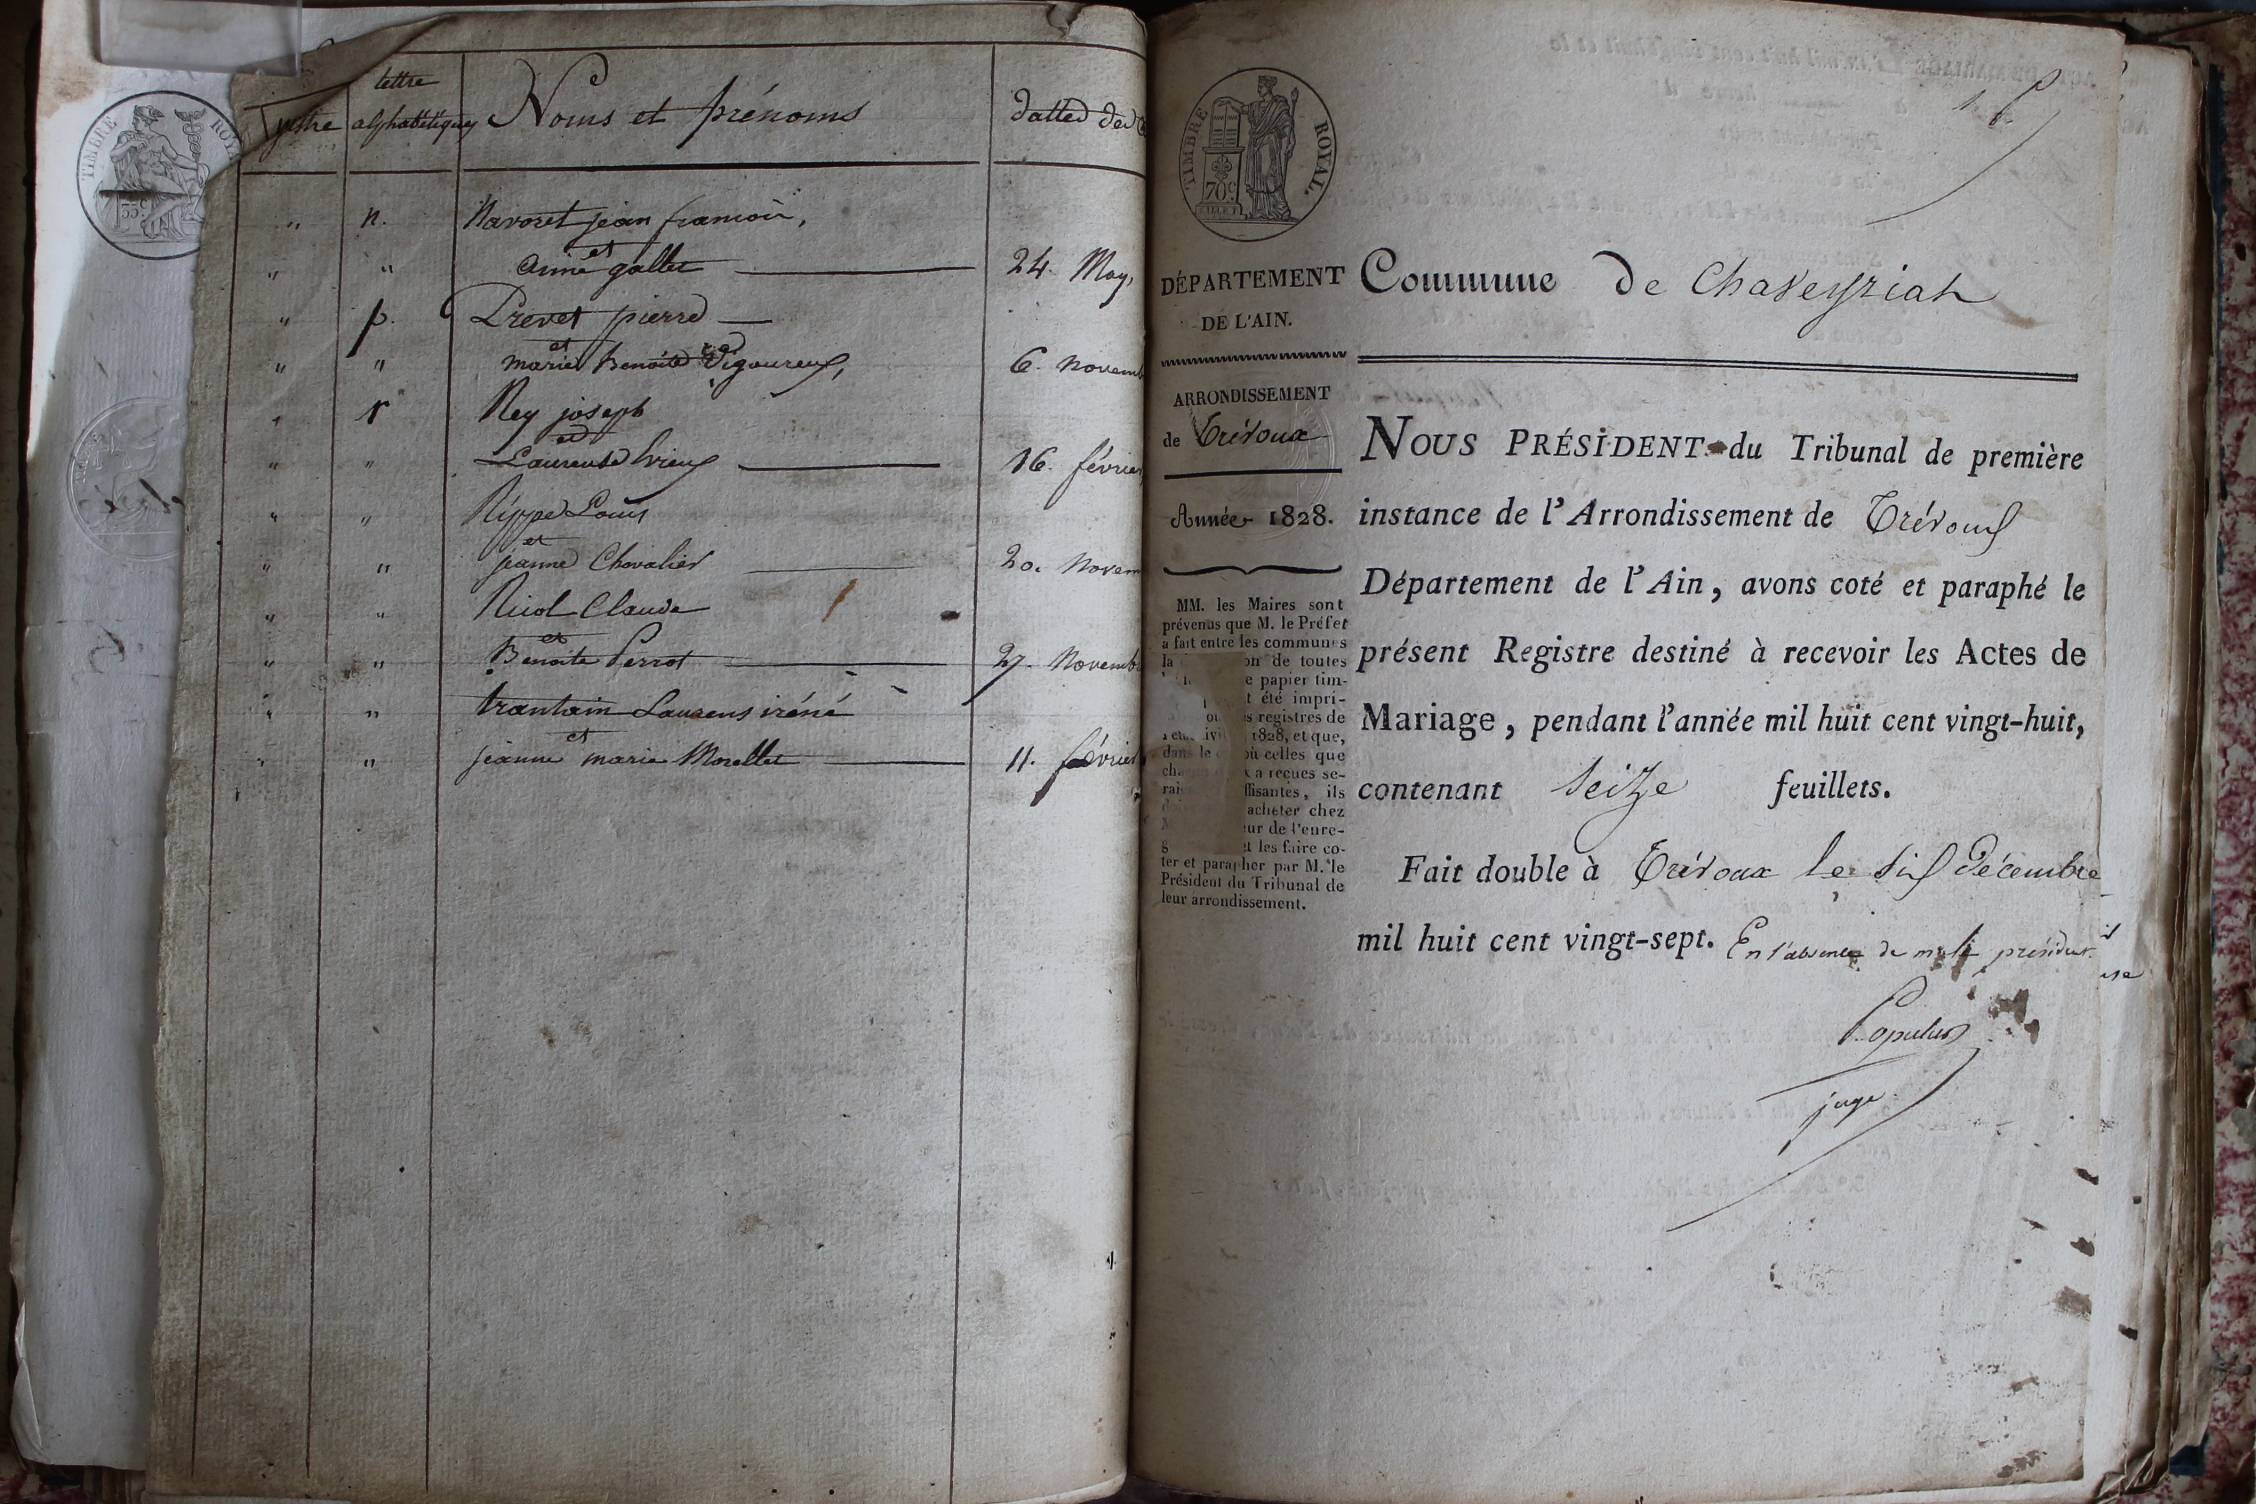 TIMBRE ROYAL
35c
lettre
alphabétique
Noms et prénoms
dattes des
" n. Navoret jean francois,
et
" " anne gallet 24. May,
" p. Prevet pierre
et
" " marie Benoite Vigoureux, 6. novemb
" r Rey joseph
et
" " Laurense 16. février
" " Rippe Louis
et
" " jeanne Chevalier 20. novem
" " Nicol Claude
et
" " Benoite Perrot 27. Novemb
" " trantain Laurens iréné
et
" " jeanne marie Morellet 11. février
TIMBRE ROYAL.
70c
1. f.
DÉPARTEMENT
DE L'AIN.
ARRONDISSEMENT
de Trévoux
Année 1828.
MM. les Maires sont
prévenus que M. le Préfet
a fait entre les communes
la on de toutes
e papier tim-
t été impri-
s registres de
1828, et que,
dans le où celles que
a reçues se-
ffisantes, ils
acheter chez
ur de l'enre-
t les faire co-
ter et parapher par M. le
Président du Tribunal de
leur arrondissement.
Commune de Chaveyriat
NOUS PRÉSIDENT du Tribunal de première
instance de l'Arrondissement de Trévoux
Département de l'Ain, avons coté et paraphé le
présent Registre destiné à recevoir les Actes de
Mariage, pendant l'année mil huit cent vingt-huit,
contenant seize feuillets.
Fait double à Trévoux le six décembre
mil huit cent vingt-sept. En l'absence de mr le président
Populus
juge